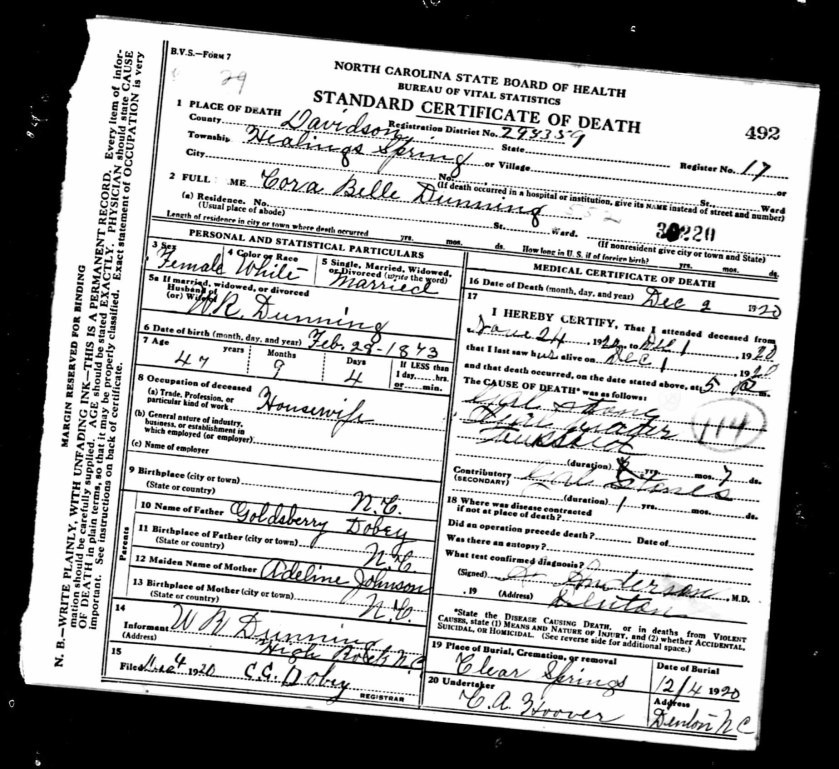 B.V.S.—FORM 7
29
NORTH CAROLINA STATE BOARD OF HEALTH
BUREAU OF VITAL STATISTICS
STANDARD CERTIFICATE OF DEATH
492
1 PLACE OF DEATH
County Davidson Registration District No. 298359 State
Township Healings Spring or Village Register No. 17 or
City No. St. Ward
(If death occurred in a hospital or institution, give its NAME instead of street and number)
2 FULL ME Cora Belle Dunning
(a) Residence. No. St. Ward.
(Usual place of abode) (If nonresident give city or town and State)
30220
Length of residence in city or town where death occurred yrs. mos. ds. How long in U. S. if of foreign birth? yrs. mos. ds.
PERSONAL AND STATISTICAL PARTICULARS
3 Sex Female
4 Color or Race White
5 Single, Married, Widowed, or Divorced (write the word) Married
5a If married, widowed, or divorced
Husband of
(or) Wife of W R Dunning
6 Date of birth (month, day, and year) Feb. 28-1873
7 Age 47 years 9 Months 4 Days If LESS than 1 day, hrs. or min.
8 Occupation of deceased
(a) Trade, Profession, or particular kind of work Housewife
(b) General nature of industry, business, or establishment in which employed (or employer)
(c) Name of employer
9 Birthplace (city or town)
(State or country) N.C.
Parents
10 Name of Father Goldsberry Dobey
11 Birthplace of Father (city or town)
(State or country) N.C.
12 Maiden Name of Mother Adeline Johnson
13 Birthplace of Mother (city or town)
(State or country) N.C.
14
Informant W R Dunning
(Address) High Point N.C
15
Filed Dec 4 1920 C.C. Dobey
REGISTRAR
MEDICAL CERTIFICATE OF DEATH
16 Date of Death (month, day, and year) Dec 2 1920
17
I HEREBY CERTIFY, That I attended deceased from
June 24, 1920, to Dec 1, 1920
that I last saw h alive on Dec 1 1920
and that death occurred, on the date stated above, at 5 m.
The CAUSE OF DEATH* was as follows:
Gall Stone
114
(duration) yrs. mos. 7 ds.
Contributory Gall Stones
(SECONDARY)
(duration) 1 yrs. mos. ds.
18 Where was disease contracted
if not at place of death?
Did an operation precede death? Date of
Was there an autopsy?
What test confirmed diagnosis?
(Signed) Anderson, M.D.
, 19 (Address) Denton
*State the DISEASE CAUSING DEATH, or in deaths from VIOLENT CAUSES, state (1) MEANS AND NATURE OF INJURY, and (2) whether ACCIDENTAL, SUICIDAL, OR HOMICIDAL. (See reverse side for additional space.)
19 Place of Burial, Cremation, or removal Clear Springs
Date of Burial 12/4 1920
20 Undertaker C. A. Hoover
Address Denton N C
MARGIN RESERVED FOR BINDING
N. B.—WRITE PLAINLY, WITH UNFADING INK—THIS IS A PERMANENT RECORD. Every item of information should be carefully supplied. AGE should be stated EXACTLY. PHYSICIAN should state CAUSE OF DEATH in plain terms, so that it may be properly classified. Exact statement of OCCUPATION is very important. See instructions on back of certificate.